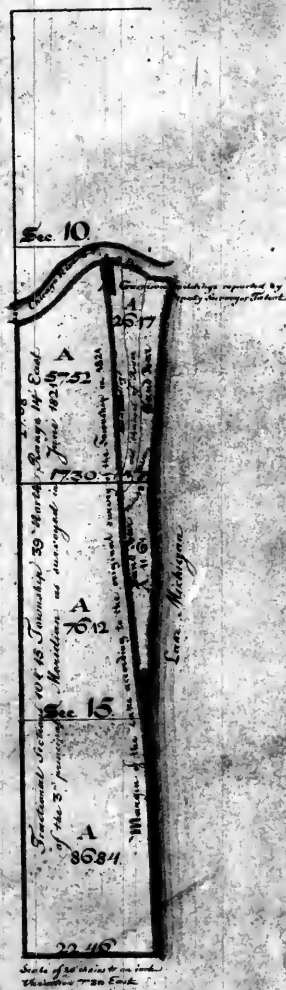 Sec. 10
Chicago River
Garrison buildings reported by
Deputy Surveyor Talcot
A
26.17
A
57.52
Sand Bar
17.30
A 11.61
A
76.12
Sec. 15
A
86.84
22.46
Fractional Sections 10 & 15 Township 39 North, Range 14 East
of the 3d principal Meridian as surveyed in June 1821
Margin of the Lake according to the original survey of the Township in 1821
Lake Michigan
Scale of 20 chains to an inch
Variation East